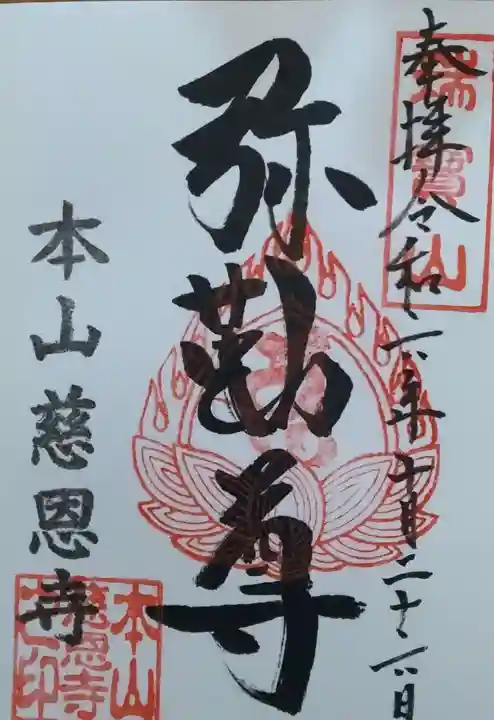 奉拝令和六年十月二十六日
瑞寳山
弥勒尊
本山慈恩寺
本山
慈恩寺
之印